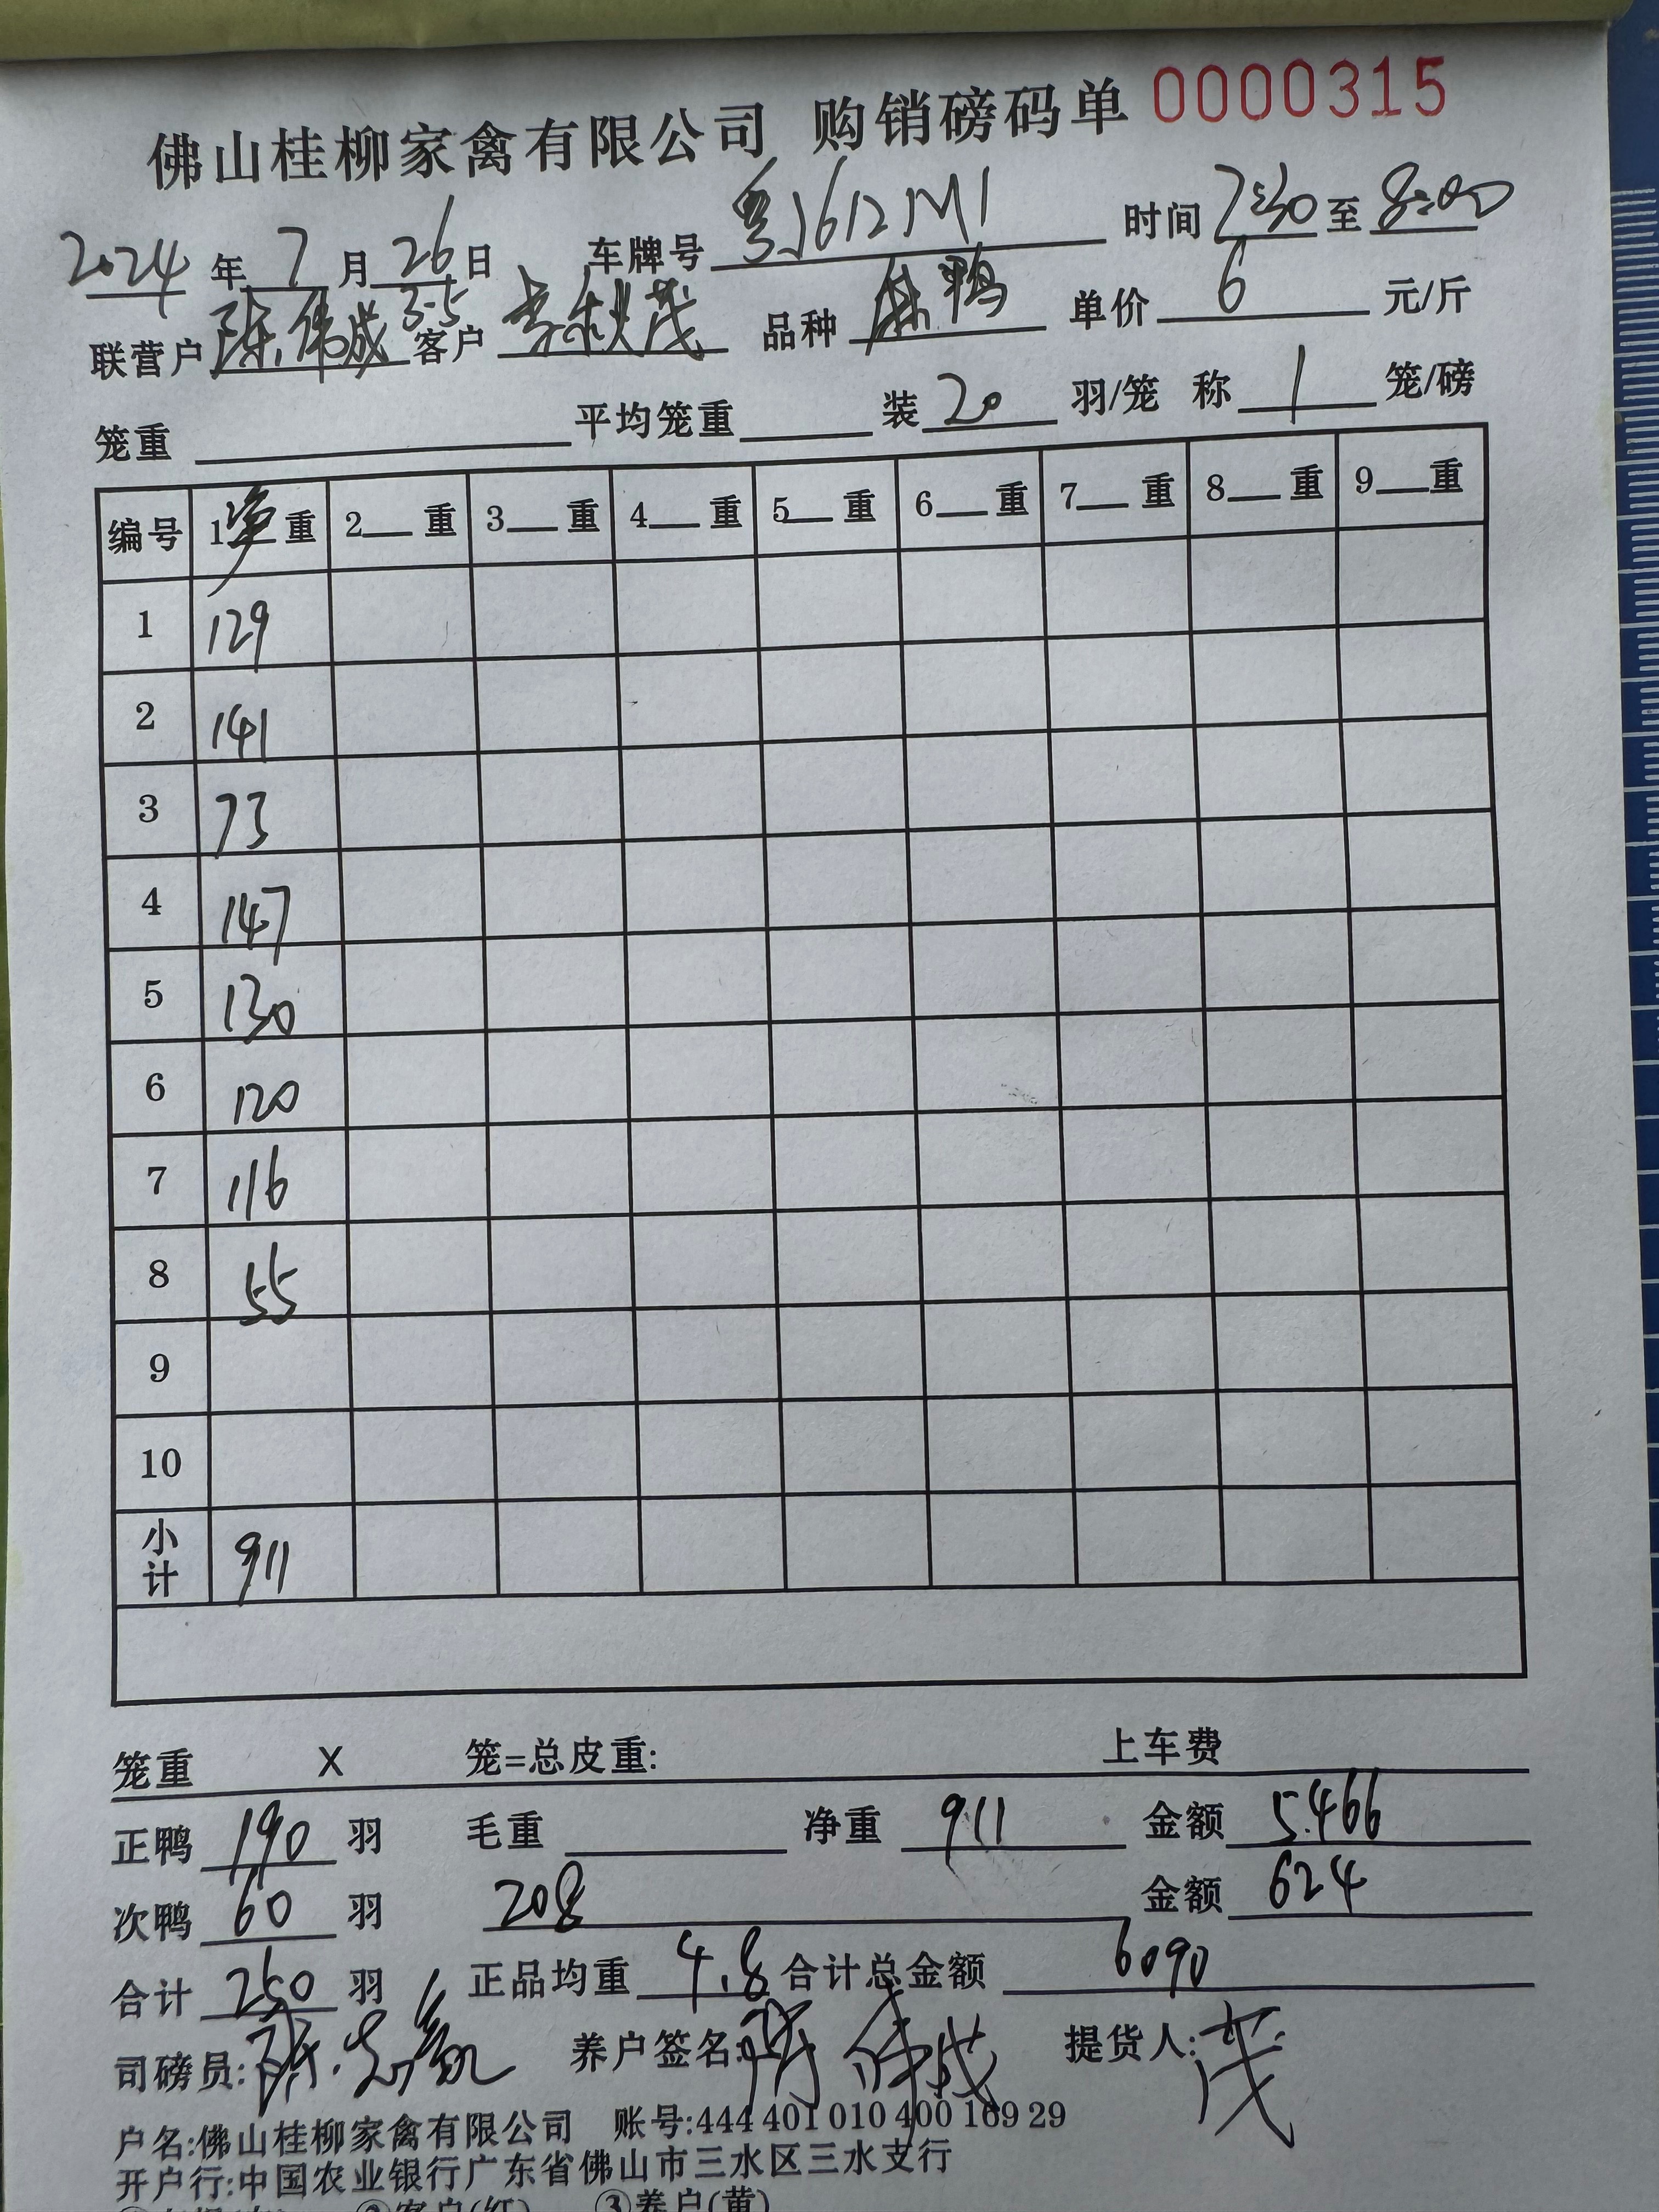 佛山桂柳家禽有限公司 购销磅码单 0000315
2024 年 7 月 26 日 车牌号 粤J612M1 时间 7:30 至 8:00
联营户 陈伟成 3-5 客户 李秋茂 品种 麻鸭 单价 6 元/斤
笼重 平均笼重 装 20 羽/笼 称 1 笼/磅
编号 1净重 2__重 3__重 4__重 5__重 6__重 7__重 8__重 9__重
1 129
2 141
3 73
4 147
5 130
6 120
7 116
8 55
9
10
小计 911
笼重 X 笼=总皮重: 上车费
正鸭 190 羽 毛重 净重 911 金额 5.466
次鸭 60 羽 208 金额 624
合计 250 羽 正品均重 4.8 合计总金额 6090
司磅员: 养户签名: 陈伟成 提货人: 茂
户名:佛山桂柳家禽有限公司 账号:444 401 010 400 169 29
开户行:中国农业银行广东省佛山市三水区三水支行
②客户(红) ③养户(黄)